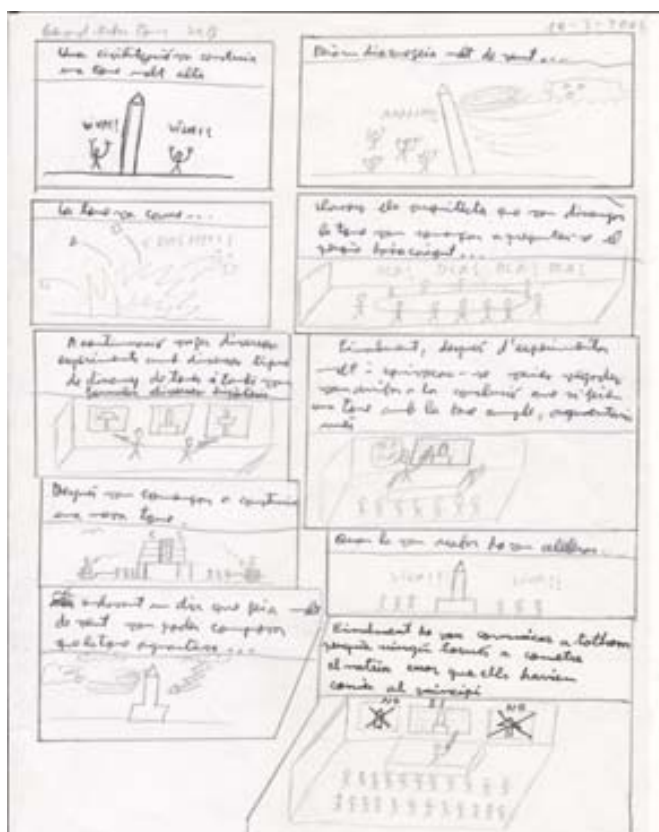 Una civilització va construir
una torre molt alta
VISCA!! VISCA!!
Però un dia va fer molt de vent...
La torre va caure...
Llavors els arquitectes que van dissenyar
la torre van començar a preguntar-se el
BLA! BLA! BLA! BLA!
A continuació van fer diversos
experiments amb diversos tipus
de disseny de torre i també van
Finalment, després d'experimentar
molt i equivocar-se varies vegades
van arribar a la conclusió que si feien
una torre amb la base ample, aguantaria
més
Després van començar a construir
una nova torre.
Quan la van acabar ho van celebrar...
VISCA!! VISCA!!
endavant un dia que feia molt
de vent van poder comprovar
que la torre aguantava...
Finalment ho van comunicar a tothom
perquè ningú tornés a cometre
el mateix error que ells havien
comès al principi
NO SI NO